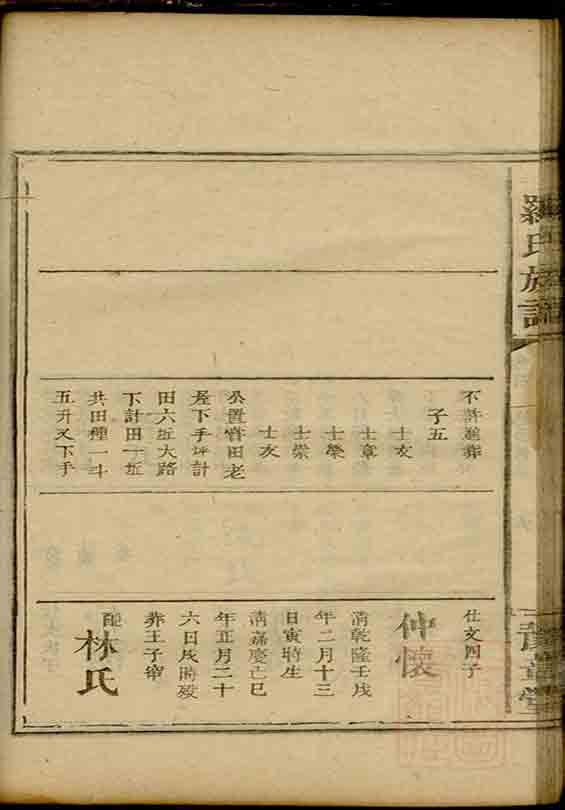 羅氏族譜
不許進葬
子五
士友
士章
士榮
士崇
士友
公置嘗田老
屋下手坪計
田六坵大路
下計田一坵
共田種一斗
五升又下手
仕文四子
仲懷
清乾隆壬戌
年二月十三
日寅時生
清嘉慶己巳
年正月二十
六日戌時歿
葬王子崠
配
林氏